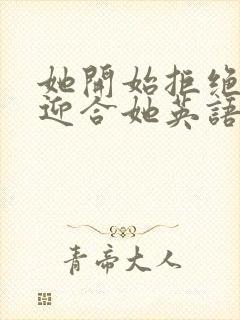 她開始拒绝
迎合她英語
青帝大人